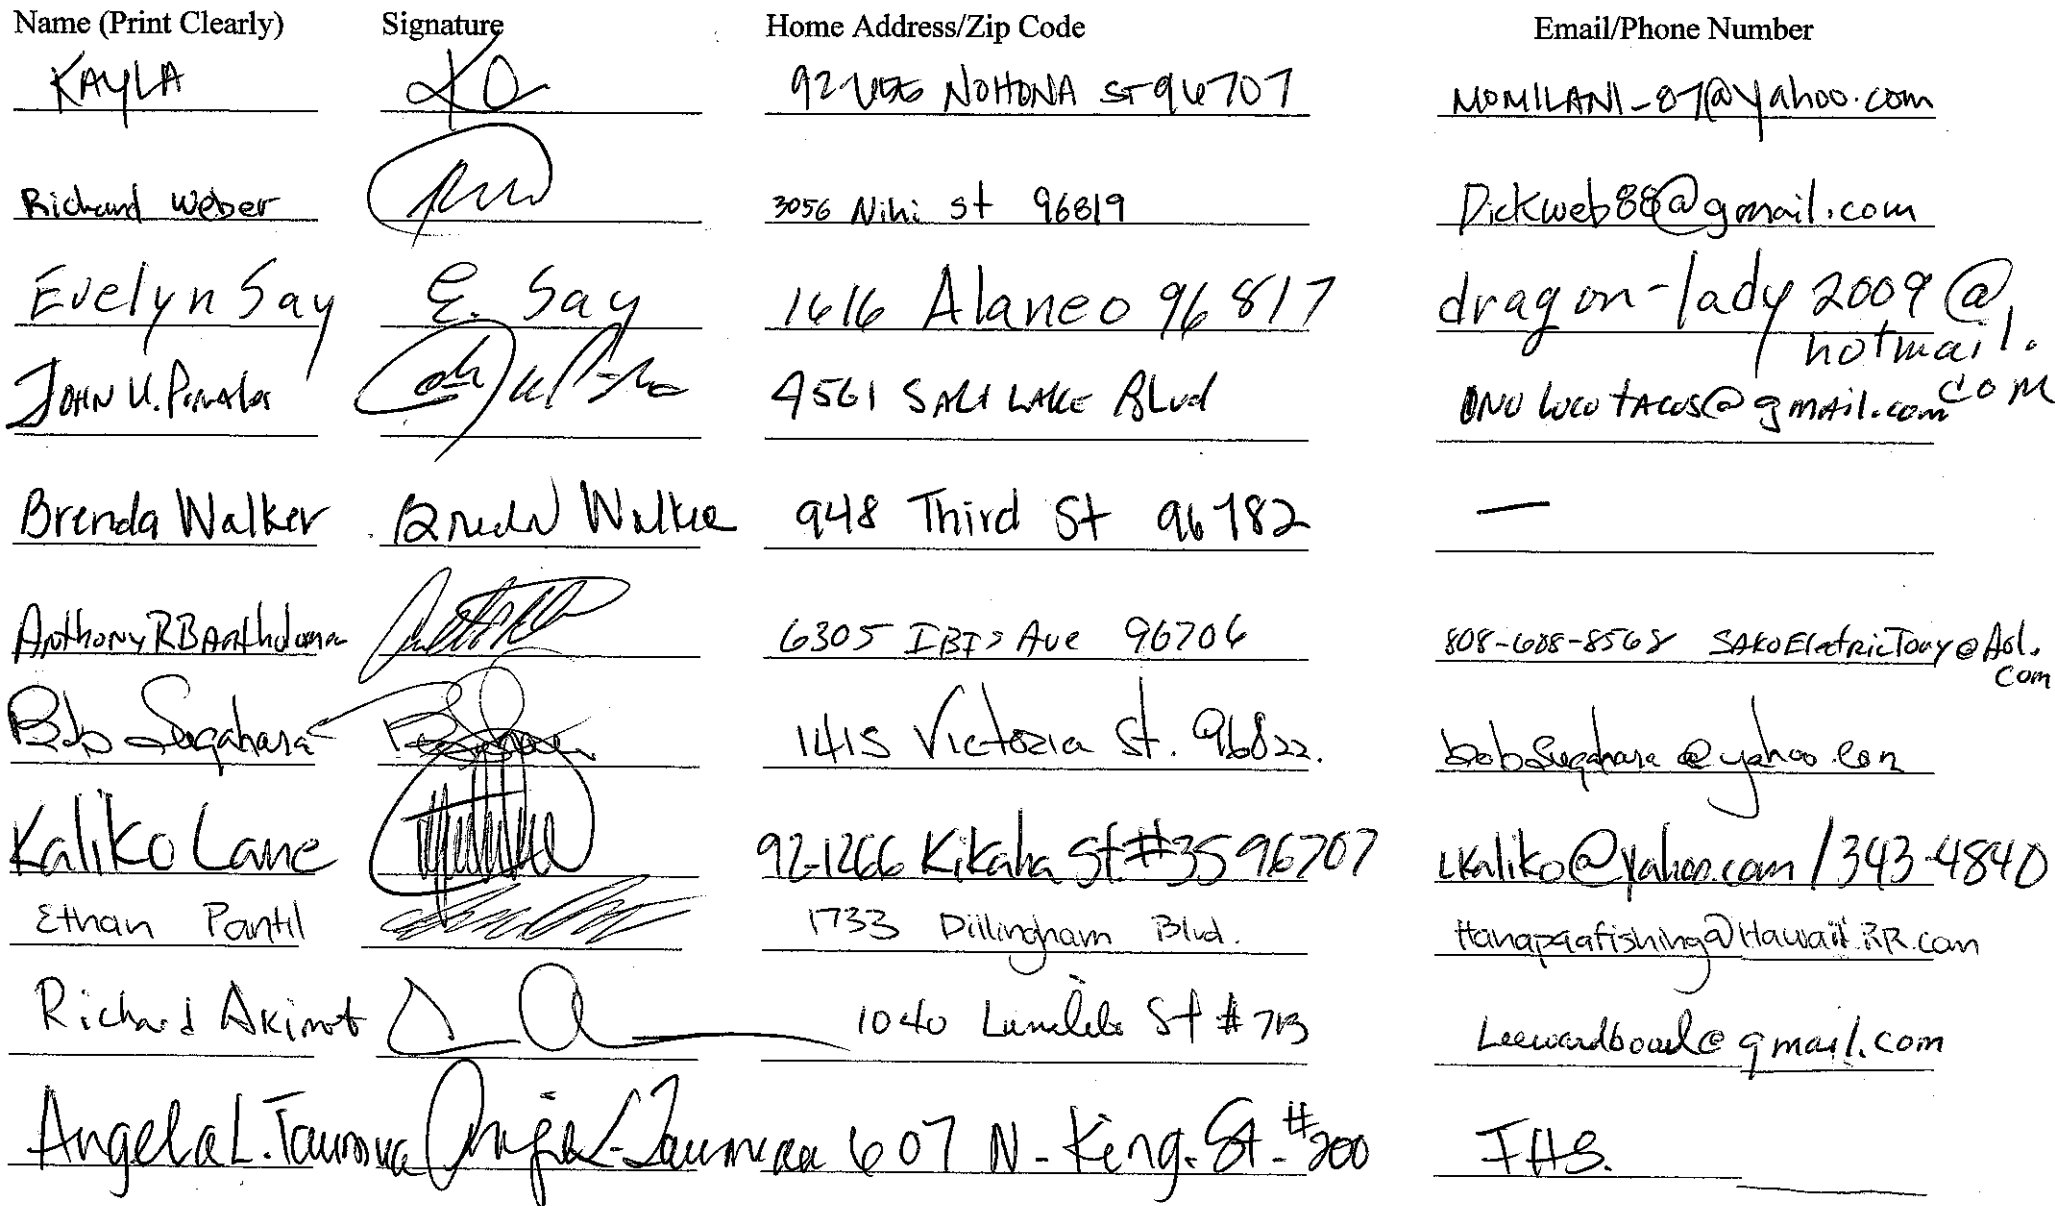 Name (Print Clearly) Signature Home Address/Zip Code Email/Phone Number
KAYLA NOHONA ST 96707 MOMILANI-07@yahoo.com
Richard Weber 3056 Nihi St 96819 Dickweb88@gmail.com
Evelyn Say E. Say 1616 Alaneo 96817 dragon-lady 2009@
hotmail.
com
JOHN U. 4561 SALT LAKE Blvd ONO LOCO TACOS@gmail.com
Brenda Walker 948 Third St 96782 —
Anthony R 6305 IBIS Ave 96706 808-688-8568 SAKOElectricTony@Aol.
com
Bob Sugahara 1415 Victoria St. 96822. bobsugahara@yahoo.com
Kaliko Lane 92-1266 Kikaha St #35 96707 Lkaliko@yahoo.com / 343-4840
Ethan Pantil 1733 Dillingham Blvd. Hanapaafishing@Hawaii.RR.com
Richard 1040 St # 713 Leewardbowl@gmail.com
Angela L. 607 N. King. St. #200 IHS.